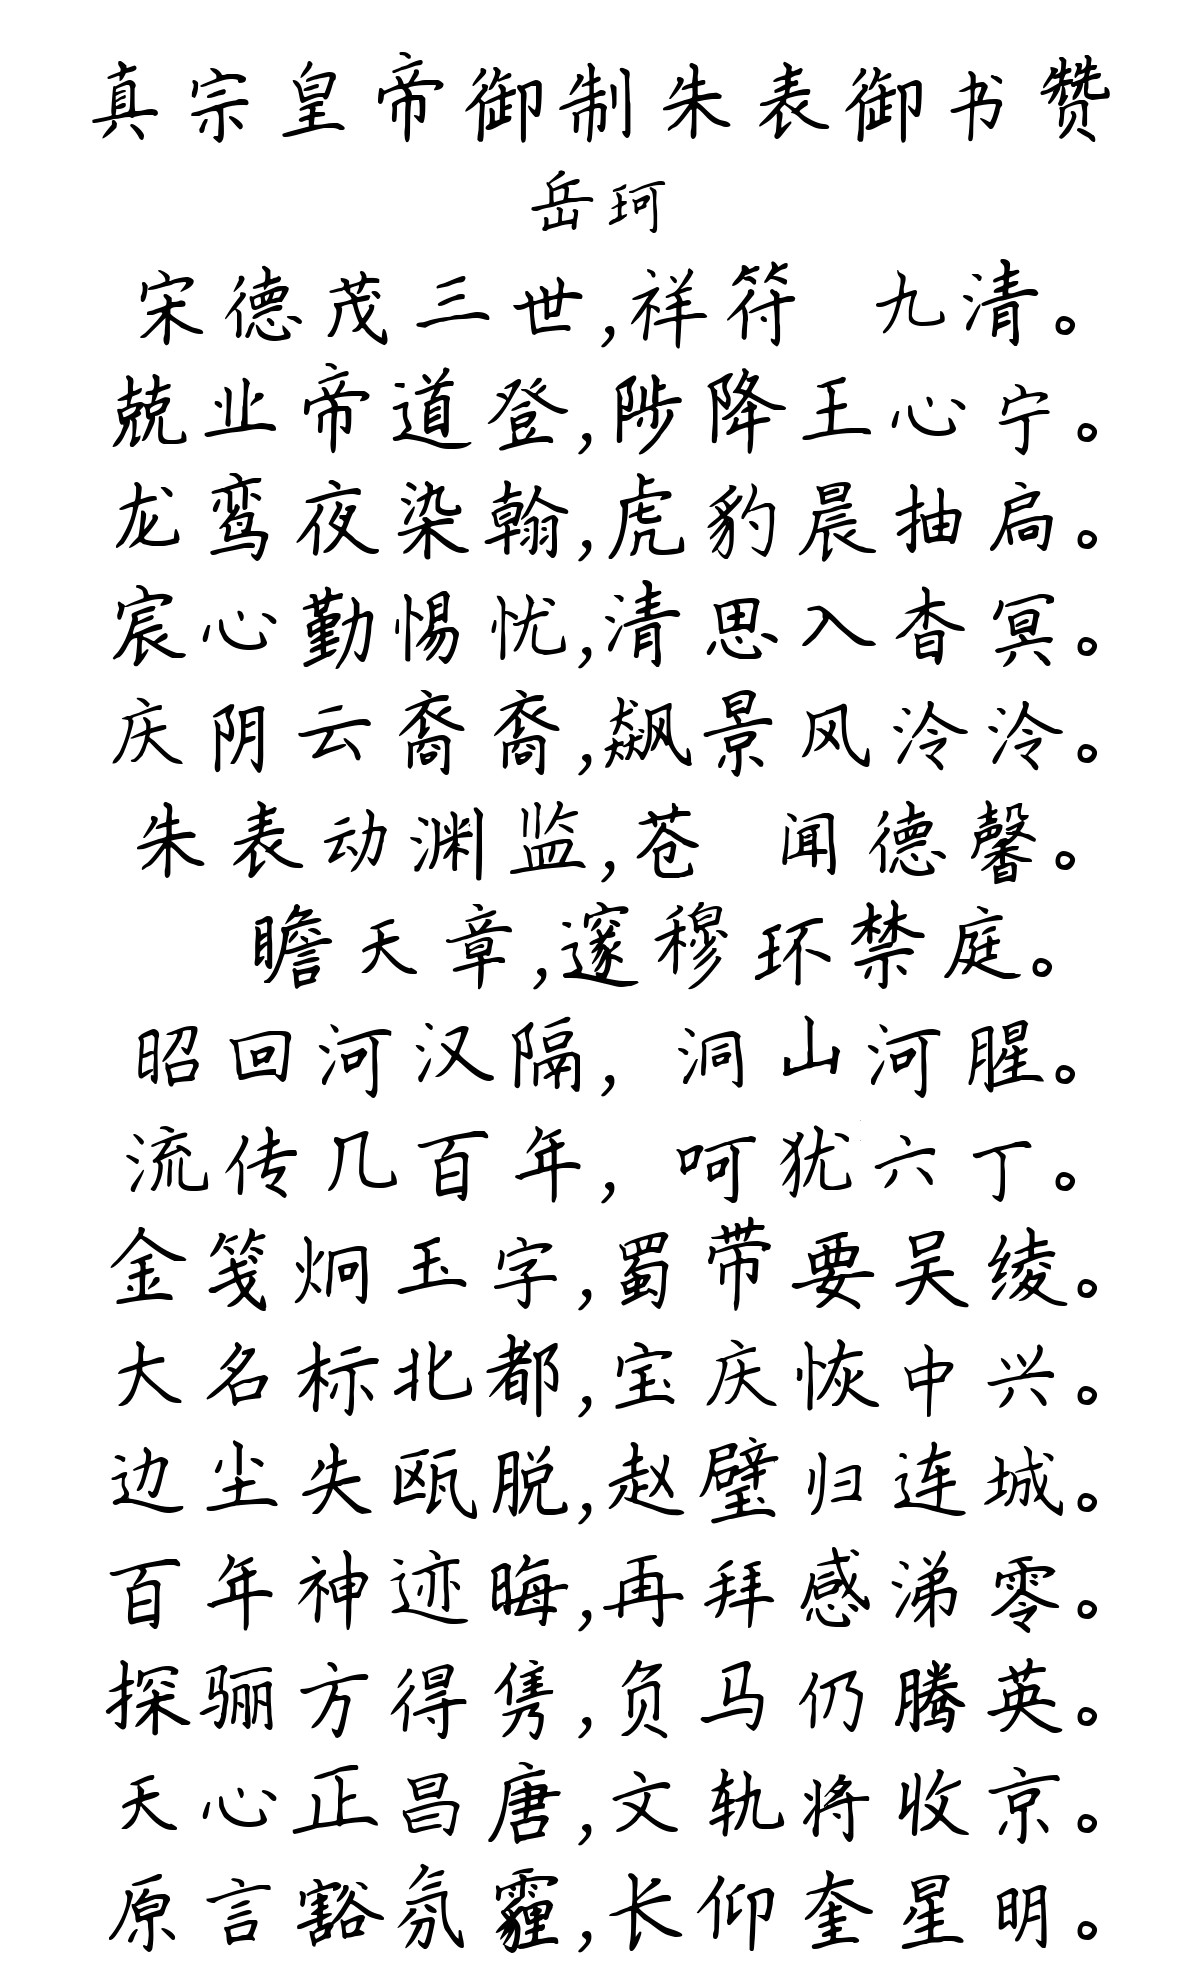 真宗皇帝御制朱表御书赞
岳珂
宋德茂三世,祥符 九清。
兢业帝道登,陟降王心宁。
龙鸾夜染翰,虎豹晨抽扃。
宸心勤惕忧,清思入杳冥。
庆阴云裔裔,飙景风泠泠。
朱表动渊监,苍 闻德馨。
瞻天章,邃穆环禁庭。
昭回河汉隔, 洞山河腥。
流传几百年, 呵犹六丁。
金笺炯玉字,蜀带要吴绫。
大名标北都,宝庆恢中兴。
边尘失瓯脱,赵璧归连城。
百年神迹晦,再拜感涕零。
探骊方得隽,负马仍腾英。
天心正昌唐,文轨将收京。
原言豁氛霾,长仰奎星明。